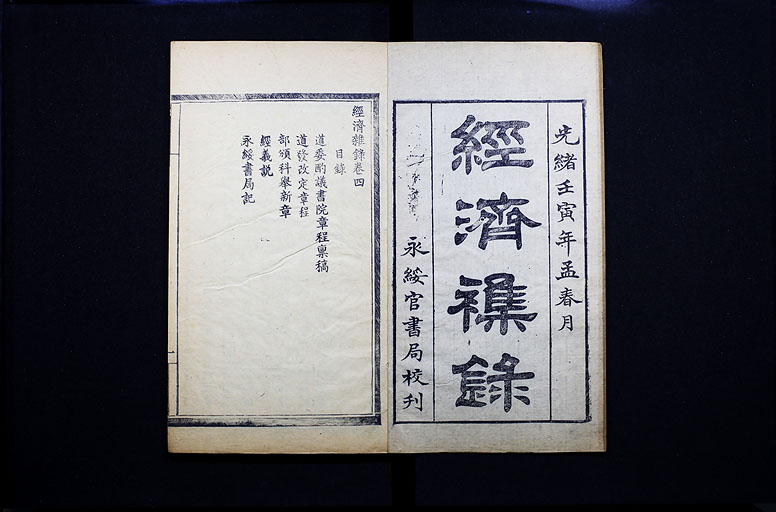 光緒壬寅年孟春月
經濟襍錄
永綏官書局校刋
經濟雜錄卷四
目錄
道委酌議書院章程稟稿
道發改定章程
部頒科舉新章
經義說
永綏書局記